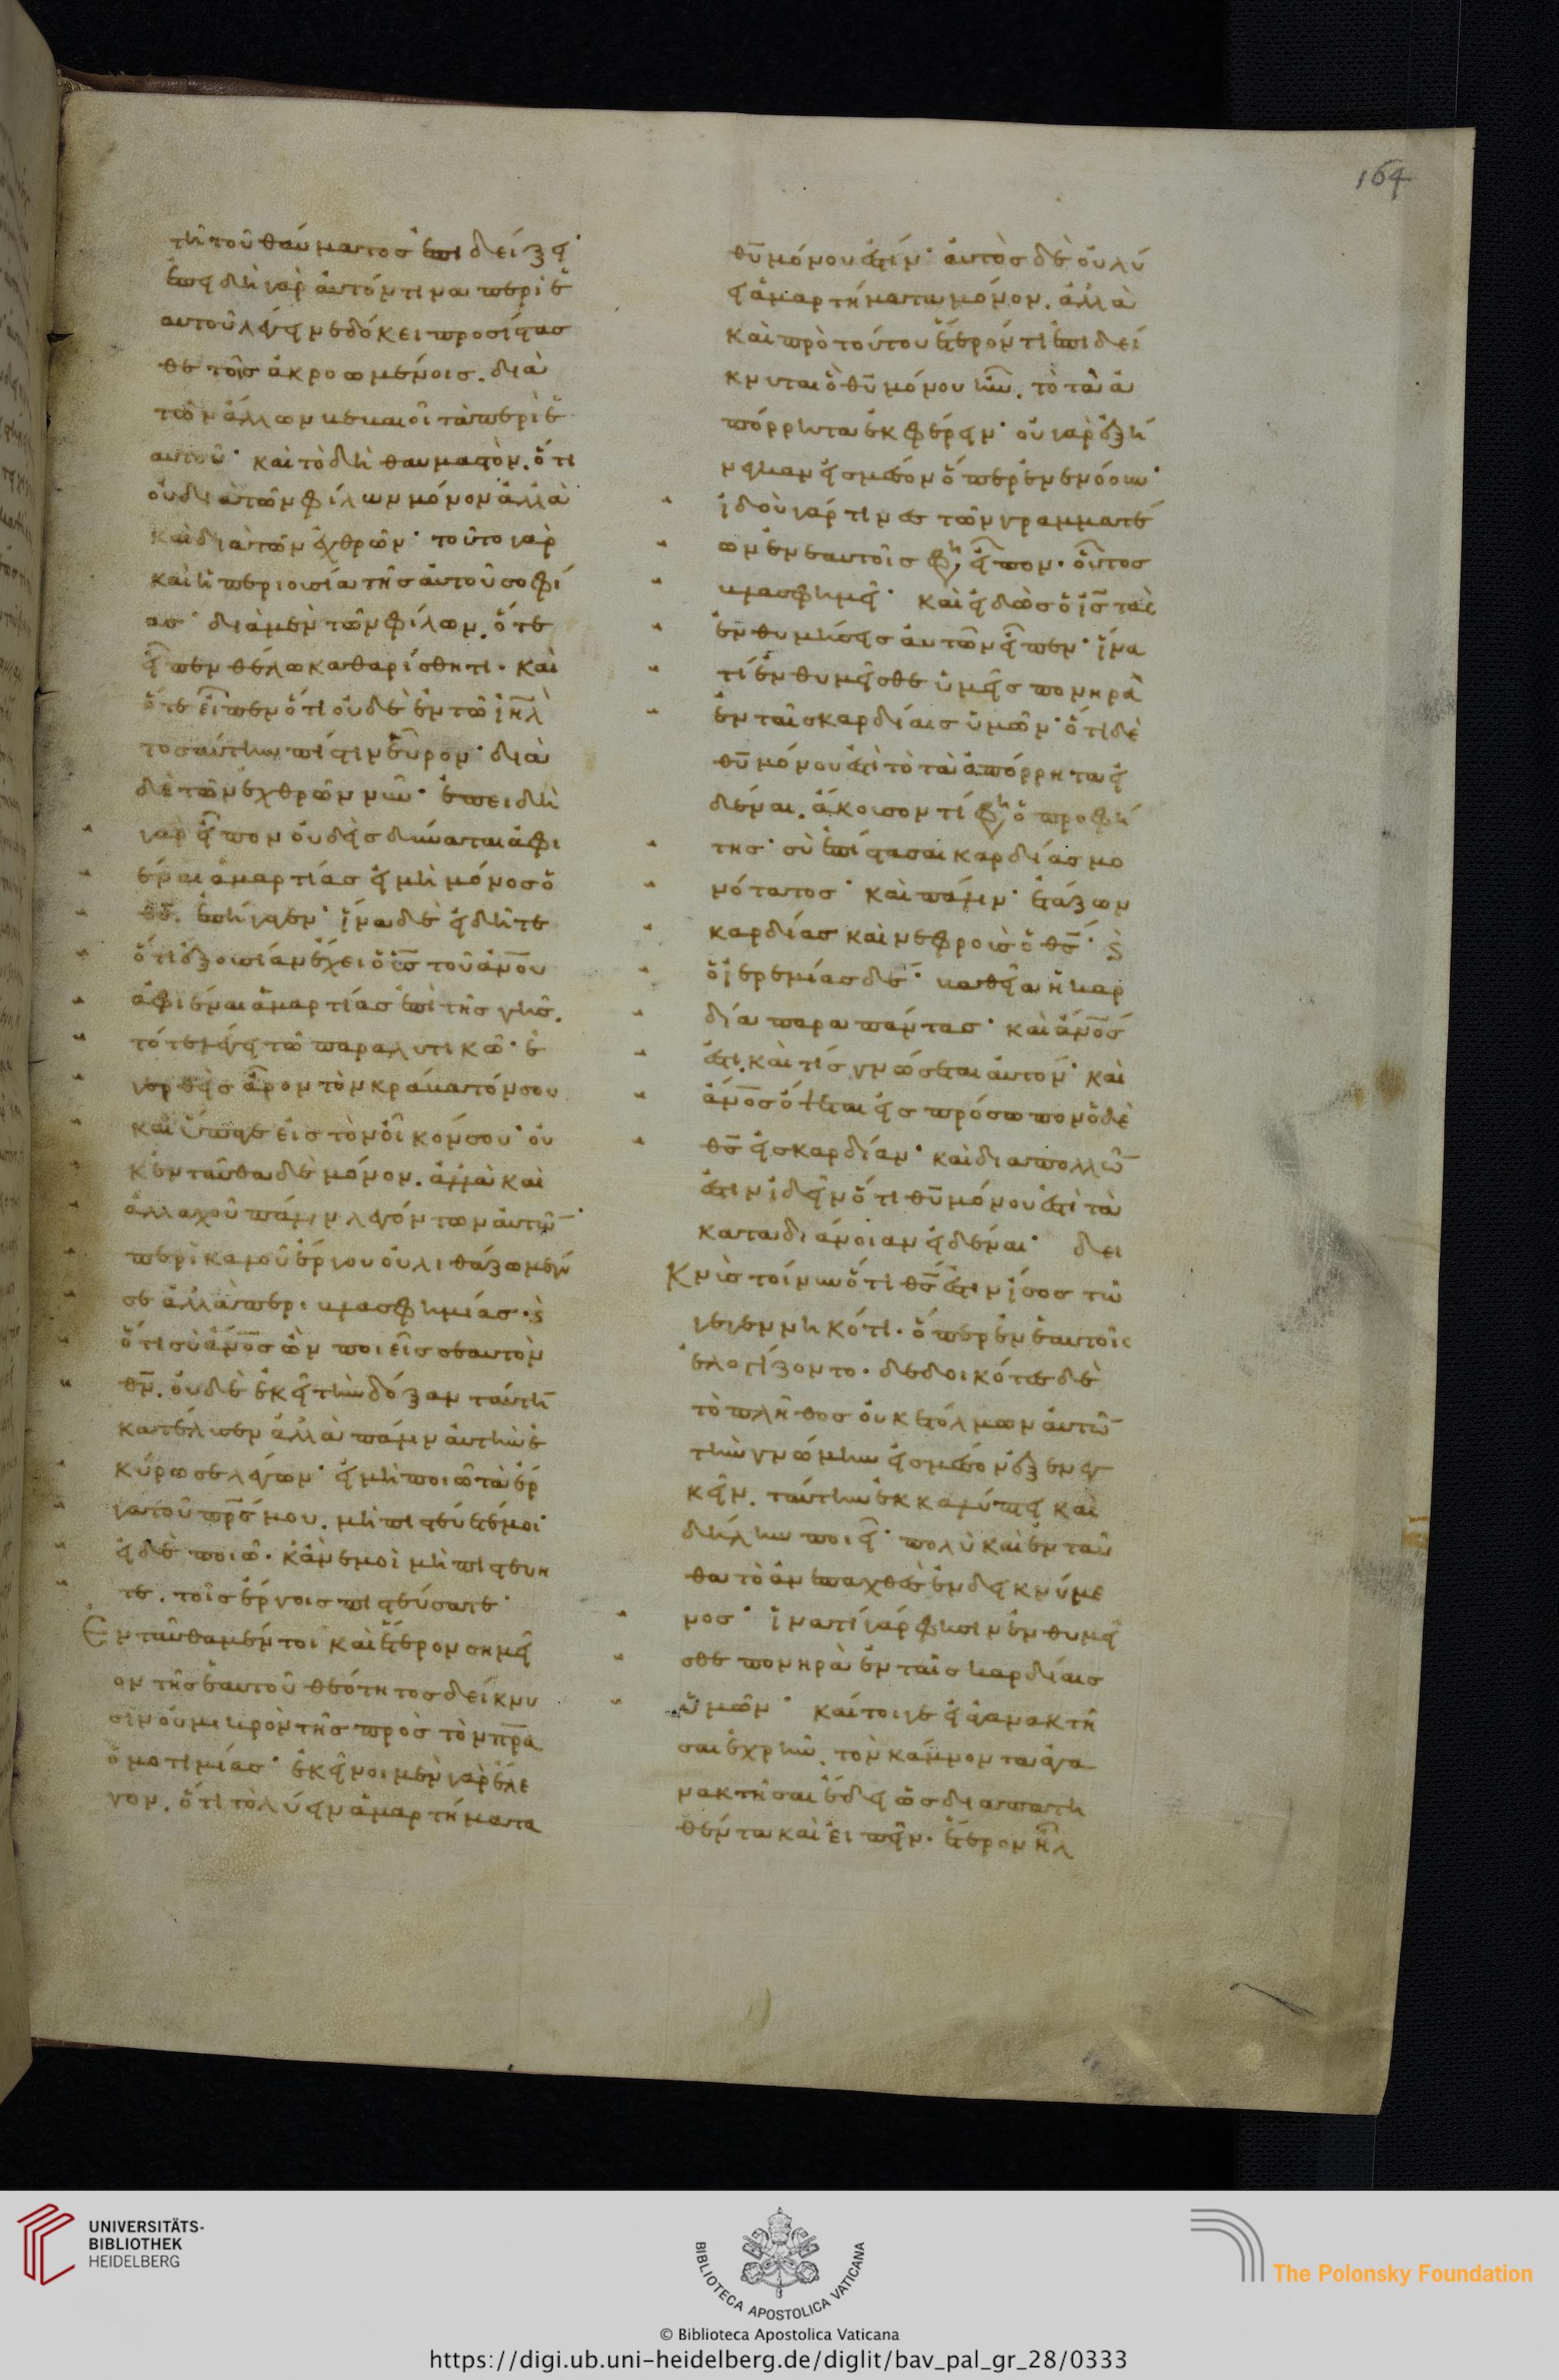 164
τῆ τοῦ θαύματος ἐπιδείξει·
ἐπειδὴ γὰρ αὐτόν τινα περὶ ἑ
αυτοῦ λέγειν ἐδόκει προσίστασ
θε τοῖς ἀκροωμένοις. διὰ
τῶν ἄλλων βεβαιοῖ τὰ περὶ ἑ
αυτοῦ· καὶ τὸ δὴ θαυμαστὸν. ὅτι
οὐ διὰ τῶν φίλων μόνον ἀλλὰ
καὶ διὰ τῶν ἐχθρῶν· τοῦτο γὰρ
καὶ ἡ περιουσία τῆς αὐτοῦ σοφί
ας· διὰ μὲν τῶν φίλων, ὅτε
εἶπεν θέλω καθαρίσθητι. καὶ
ὅτε εἶπεν ὅτι οὐδὲ ἐν τῶ ἰηλ
τοσαύτην πίστιν εὗρον· διὰ
δὲ τῶν ἐχθρῶν νῦν· ἐπειδὴ
γὰρ εἶπον οὐδεὶς δύναται ἀφι
έναι ἁμαρτίας εἰ μὴ μόνος ὁ
θς. ἐπήγαγεν· ἵνα δὲ εἰδῆτε
ὅτι ἐξουσίαν ἔχει ὁ υἱς τοῦ ἀνου
ἀφιέναι ἁμαρτίας ἐπὶ τῆς γῆς.
τότε λέγει τῶ παραλυτικῶ· ἐ
γερθεὶς ἆρον τὸν κράβατόν σου
καὶ ὕπαγε εἰς τὸν οἶκόν σου· οὐ
κ ἐνταῦθα δὲ μόνον. ἀλλὰ καὶ
ἀλλαχοῦ πάλιν λεγόντων αὐτῶ·
περὶ καλοῦ ἔργου οὐ λιθάζομέν
σε ἀλλὰ περὶ βλασφημίας. καὶ
ὅτι σὺ ἀνος ὢν ποιεῖς σεαυτὸν
θν. οὐδὲ ἐκεῖ τὴν δόξαν ταύτη
κατέλυσεν ἀλλὰ πάλιν αὐτὴν ἐ
κύρωσε λέγων· εἰ μὴ ποιῶ τὰ ἔρ
γα τοῦ πρς μου. μὴ πιστεύετέ μοι·
εἰ δὲ ποιῶ. κἂν ἐμοὶ μὴ πιστευη
τε. τοῖς ἔργοις πιστεύσατε·
Ἐνταῦθα μέντοι καὶ ἕτερον σημεῖ
ον τῆς ἑαυτοῦ θεότητος δείκνυ
σιν οὐ μικρὸν τῆς πρὸς τὸν πρα
ὁμοτιμίας· ἐκεῖνοι μὲν γὰρ ἔλε
γον. ὅτι τὸ λύειν ἁμαρτήματα
θυ μόνου ἐστίν· αὐτὸς δὲ οὐ λύ
ει ἁμαρτήματα μόνον. ἀλλὰ
καὶ πρὸ τούτου ἕτερόν τι ἐπιδεί
κνυται ὃ θυ μόνου ἦν. τὸ τὰ ἀ
πόρρητα ἐκφέρειν· οὐ γὰρ ἐξή
νεγκαν εἰς μέσον ὅπερ ἐνενόουν·
ἰδοὺ γάρ τινες τῶν γραμματέ
ων ἐν ἑαυτοῖς φη εἶπον. οὗτος
βλασφημεῖ· καὶ εἰδὼς ὁ ις τὰς
ἐνθυμήσεις αὐτῶν εἶπεν· ἵνα
τί ἐνθυμεῖσθε ὑμεῖς πονηρὰ
ἐν ταῖς καρδίαις ὑμῶν· ὅτι δὲ
θυ μόνου ἐστὶ τὸ τὰ ἀπόρρητα εἰ
δέναι. ἄκουσον τί φη ὁ προφή
της· σὺ ἐπίστασαι καρδίας μο
νότατος· καὶ πάλιν· ἐτάζων
καρδίας καὶ νεφροὺς ὁ θς· καὶ
ὁ ἱερεμίας δέ· βαθεῖα ἡ καρ
δία παρα πάντας· καὶ ἀνός
ἐστι. καὶ τίς γνώσεται αὐτόν· καὶ
ἀνος ὄψεται εἰς πρόσωπον ὁ δὲ
θς εἰς καρδίαν· καὶ δια πολλῶ
ἐστιν ἰδεῖν ὅτι θυ μόνου ἐστὶ τὰ
κατα διάνοιαν εἰδέναι· δει
Κνὺς τοίνυν ὅτι θς ἐστιν ἴσος τῶ
γεγεννηκότι. ὅπερ ἐν ἑαυτοῖς
ἐλογίζοντο. δεδοικότες δὲ
τὸ πλῆθος οὐκ ἐτόλμων αὐτῶ
τὴν γνώμην εἰς μέσον ἐξενεγ
κεῖν. ταύτην ἐκκαλύπτει καὶ
δήλην ποιεῖ· πολὺ καὶ ἐνταῦ
θα τὸ ἀνεπαχθὲς ἐνδεικνύμε
νος· ἱνατί γάρ φησιν ἐνθυμεῖ
σθε πονηρὰ ἐν ταῖς καρδίαις
ὑμῶν· καίτοιγε εἰ ἀγανακτῆ
σαι ἐχρῆν. τὸν κάμνοντα ἀγα
νακτῆσαι ἔδει ὡς διαπατη
θέντα καὶ εἰπεῖν. ἕτερον ἦλ
UNIVERSITÄTS-
BIBLIOTHEK
HEIDELBERG
BIBLIOTECA APOSTOLICA VATICANA
The Polonsky Foundation
© Biblioteca Apostolica Vaticana
https://digi.ub.uni-heidelberg.de/diglit/bav_pal_gr_28/0333